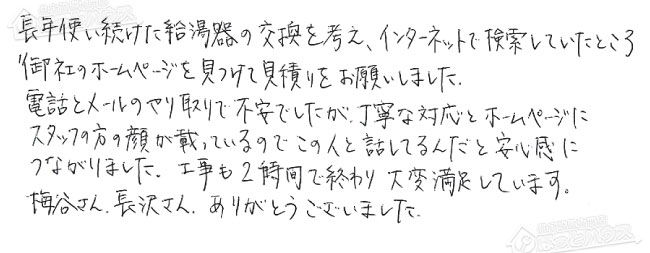 長年使い続けた給湯器の交換を考え、インターネットで検索していたところ
御社のホームページを見つけて見積りをお願いしました.
電話とメールのやり取りで不安でしたが、丁寧な対応とホームページに
スタッフの方の顔が載っているのでこの人と話してるんだと安心感に
つながりました. 工事も2時間で終わり大変満足しています。
梅谷さん.長沢さん. ありがとうございました.